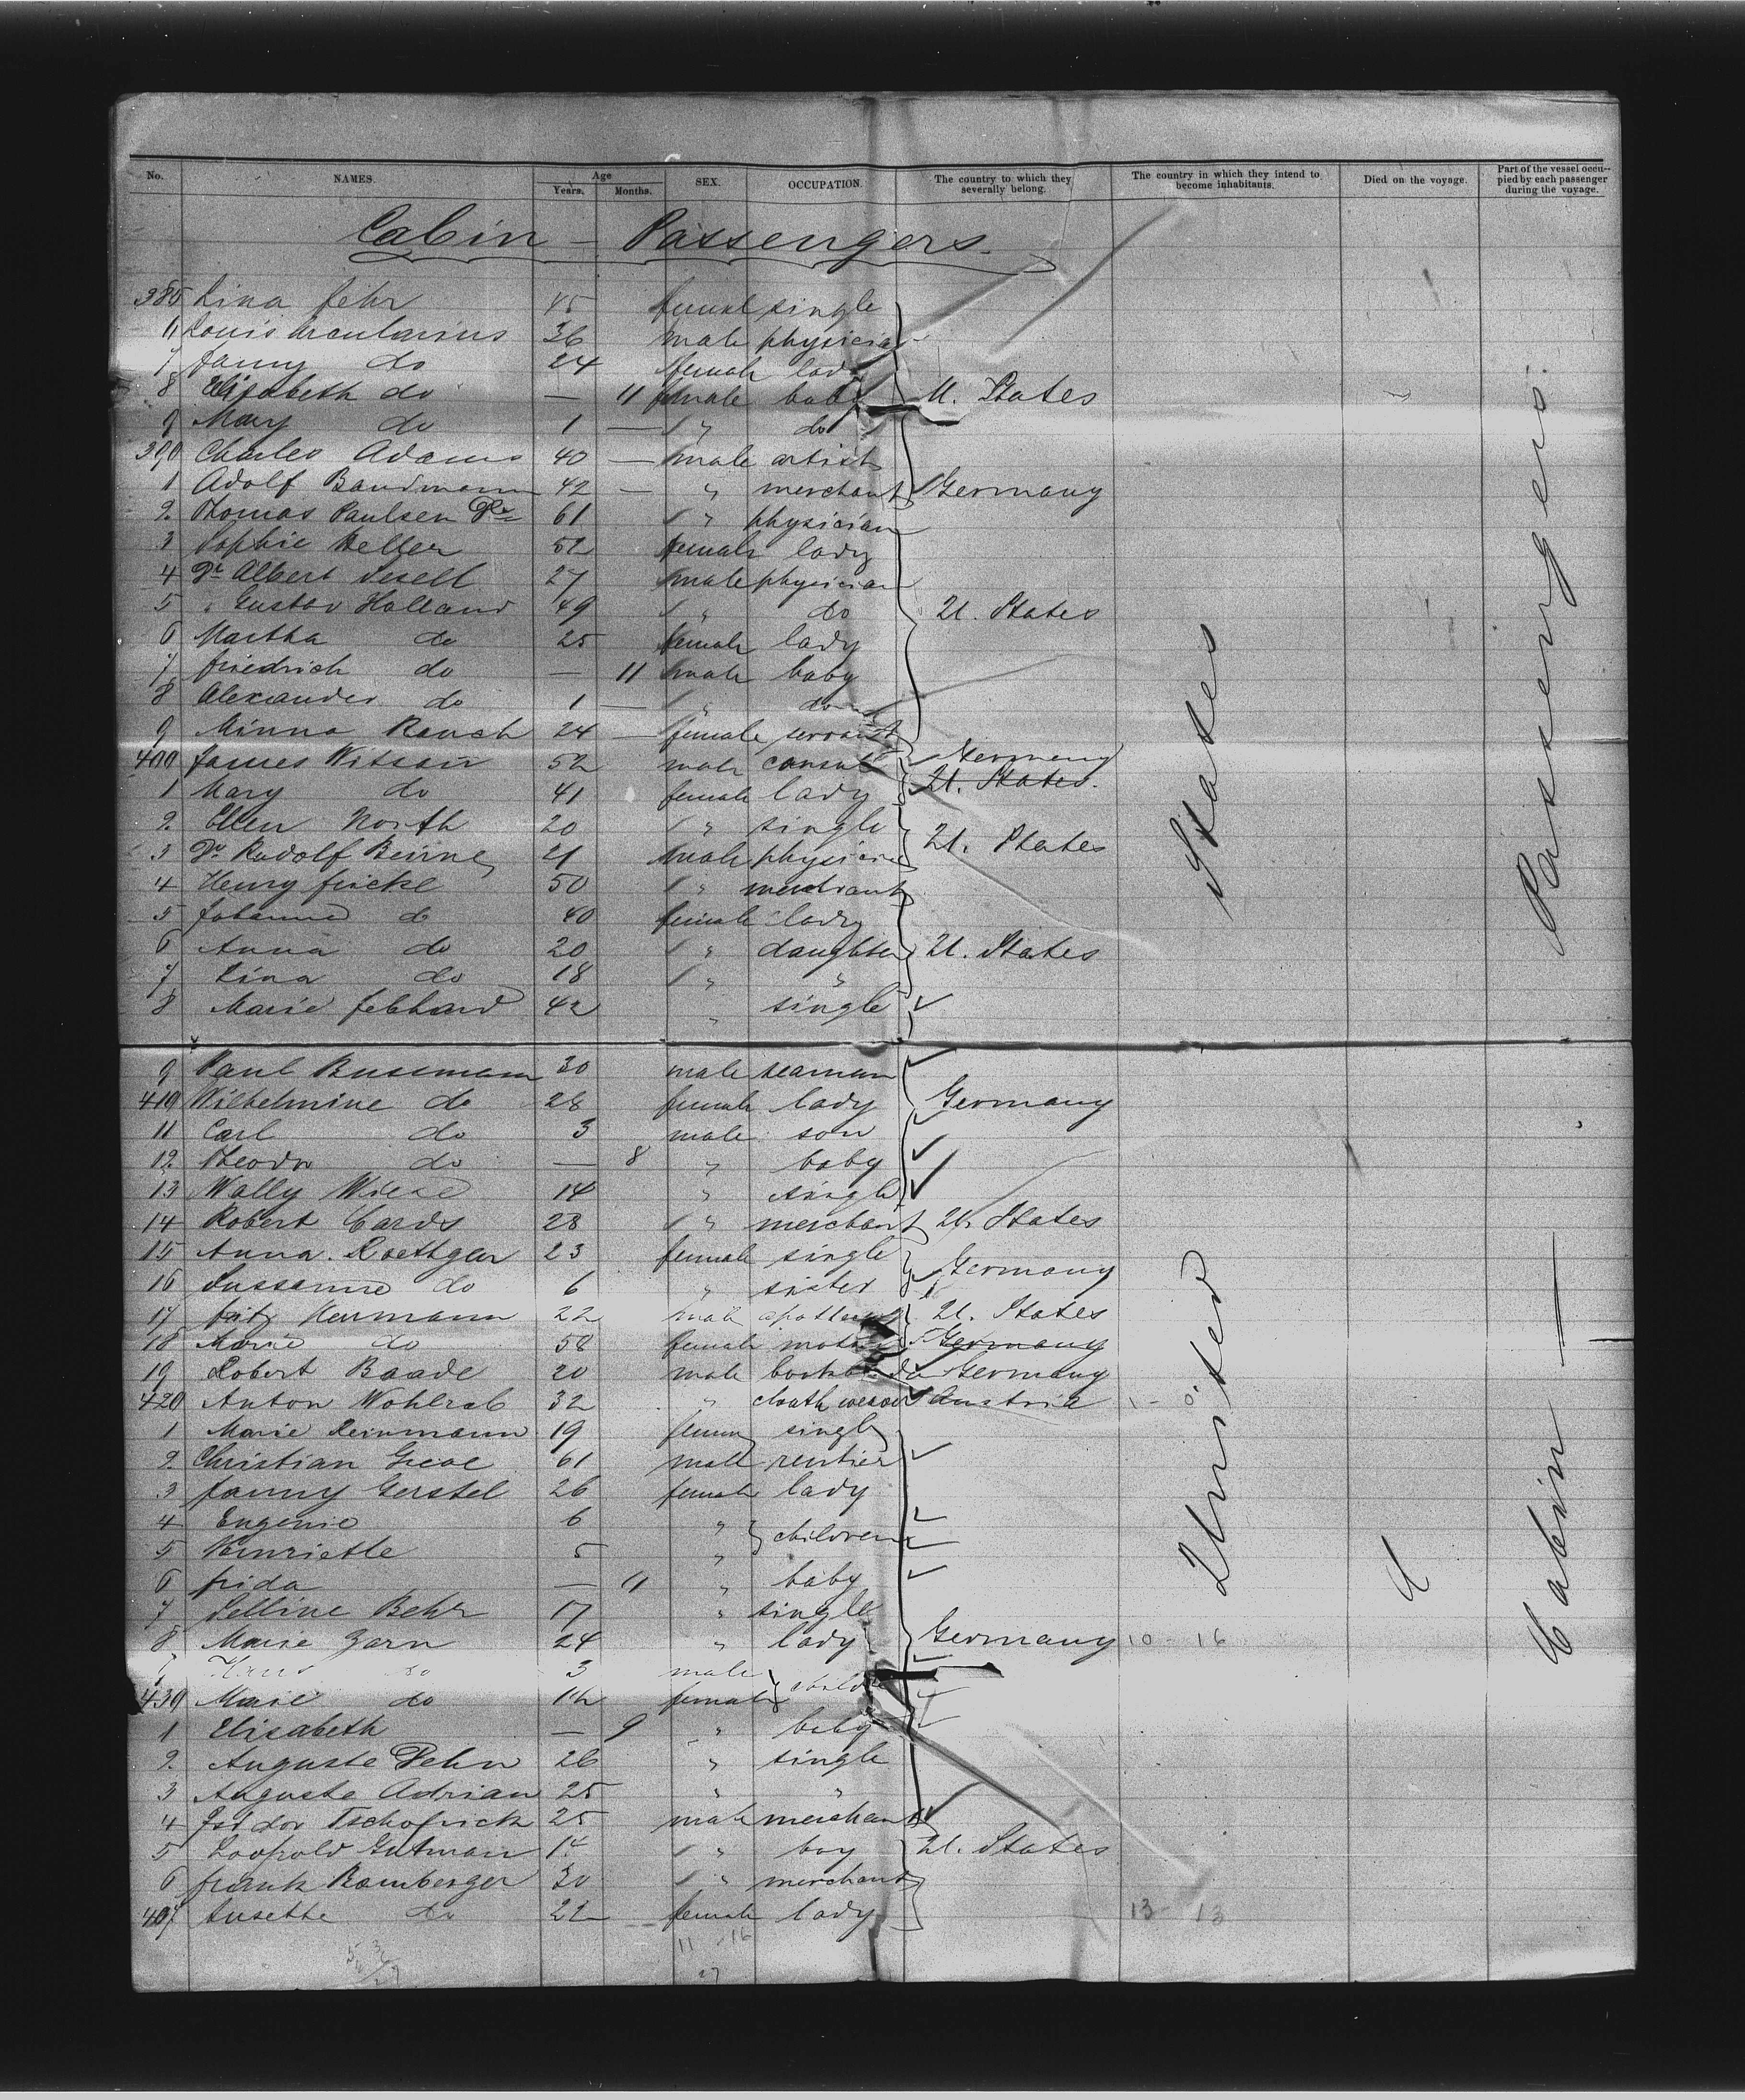 No. NAMES. Age Years. Months. SEX. OCCUPATION. The country to which they severally belong. The country in which they intend to become inhabitants. Died on the voyage. Part of the vessel occupied by each passenger during the voyage.
Cabin – Passengers.
385 Lina Fehr 45 female single
6 Louis Arcularius 36 male physician
7 Fanny do 24 female lady
8 Elisabeth do — 11 female baby U. States
9 Mary do 1 — " do
390 Charles Adams 40 — male artist
1 Adolf Bandmann 42 — " merchant Germany
2 Thomas Paulsen Dr 61 " physician
3 Sophie Heller 52 female lady
4 Dr Albert 27 male physician
5 " Gustav Holland 49 " do U. States
6 Martha do 25 female lady
7 Friedrich do — 11 male baby
8 Alexander do 1 — " do
9 Minna Rauch 24 — female servant Germany
400 James Wilson 52 male consul U. States.
1 Mary do 41 female lady
2 Ellen North 20 " single U. States
3 Dr Rudolf 21 male physician
4 Henry Fricke 50 " merchant
5 Johanna do 40 female lady
6 Anna do 20 " daughter U. States
7 Lina do 18 " "
8 Marie Gebhard 42 " single
9 Paul Bussmann 30 male seaman
410 Wilhelmine do 28 female lady Germany
11 Carl do 3 male son
12 Theodor do — 8 " baby
13 Wally Wiese 14 " single
14 Robert Cards 28 " merchant U. States
15 Anna Roettger 23 female single Germany
16 Sussanne do 6 " sister
17 Fritz Hermann 22 male U. States
18 Marie do 58 female mother Germany
19 Robert Baade 20 male Germany
420 Anton Wohlrab 32 " cloath weaver Austria
1 Marie Reinmann 19 single
2 Christian 61 male rentier
3 Fanny Gerstel 26 female lady
4 Eugenie 6 " children
5 Henriette 5 "
6 Frida — 11 " baby
7 Selline Behr 17 " single
8 Marie Zorn 24 " lady Germany 10 - 16
9 Hans do 3 male
430 Marie do female
1 Elisabeth — 9 " baby
2 Auguste Dehn 26 " single
3 Auguste Adrian 25 " "
4 Isidor 25 male merchant
5 Leopold Gutman 14 " boy U. States
6 Frank Bamberger 30 " merchant
Susette do 22 female lady 13 - 13
11 - 16
27
United States
Cabin — Passengers.